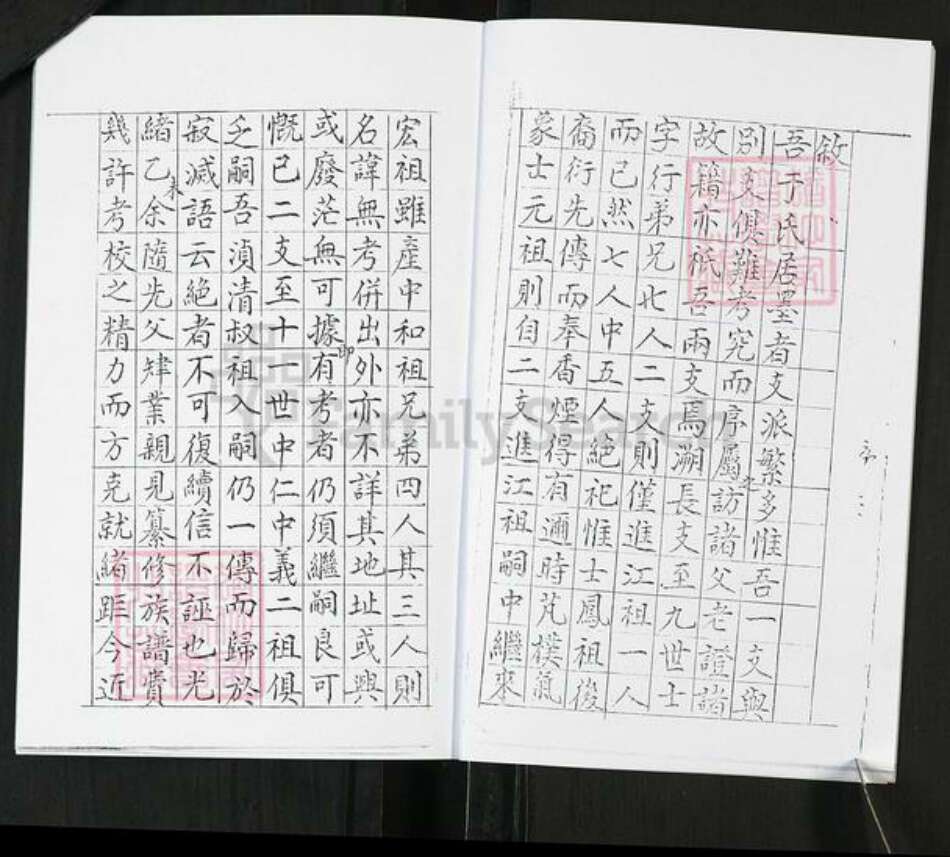 敘
吾于氏居墨者支派繁多惟吾一支與
別支俱難考究而序屬之訪諸父老證諸
故籍亦祇吾兩支焉溯長支至九世士
字行弟兄七人二支則僅進江祖一人
而已然七人中五人絕祀惟士鳳祖後
裔衍先傳而奉香煙得有邇時芃樸氣
象士元祖則自二支進江祖嗣中繼來
宏祖雖產中和祖兄弟四人其三人則
名諱無考併出外亦不詳其地址或興
或廢茫無可據即有考者仍須繼嗣良可
慨已二支至十一世中仁中義二祖俱
乏嗣吾湞清叔祖入嗣仍一傳而歸於
寂滅語云絕者不可復續信不誣也光
緒乙未余隨先父肄業親見纂修族譜費
幾許考校之精力而方克就緒距今近
FamilySearch